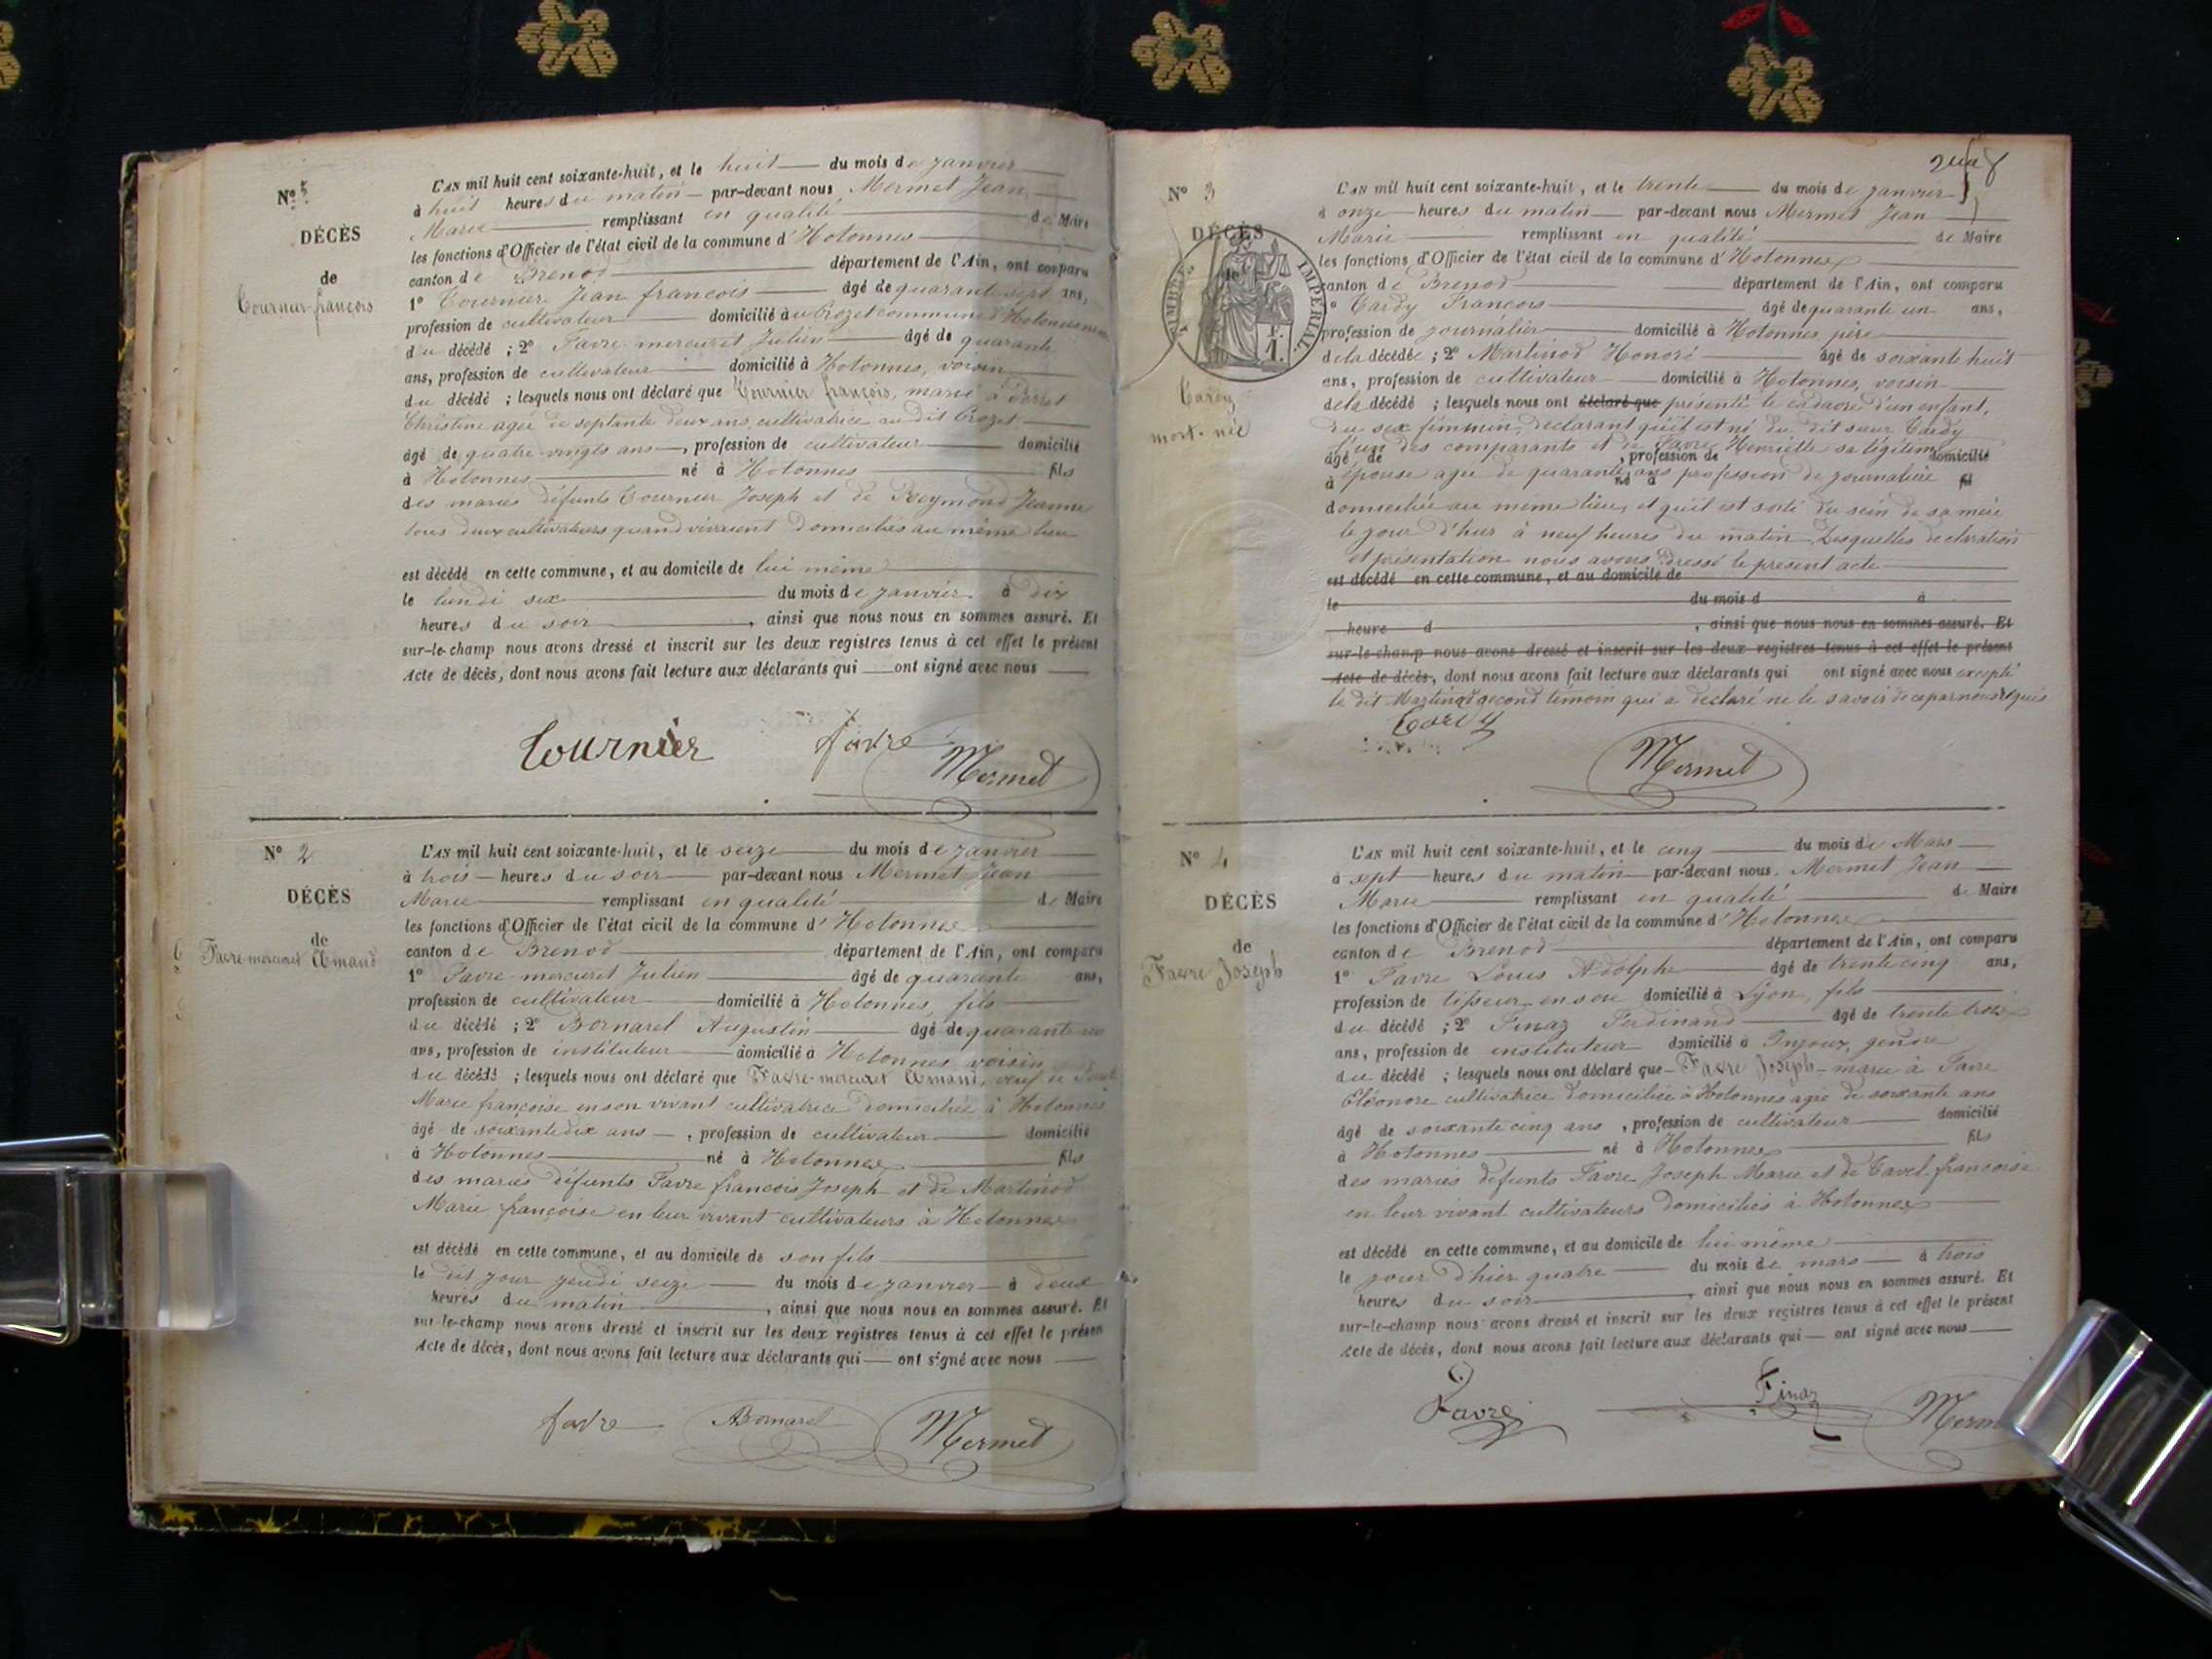 DÉCÈS
de
Tournier françois
L'AN mil huit cent soixante-huit, et le huit du mois de janvier
à huit heures du matin par-devant nous Mermet Jean
Marie remplissant en qualité de Maire
les fonctions d'Officier de l'état civil de la commune d'Hotonnes
canton de Brenod département de l'Ain, ont comparu
1° Tournier Jean francois âgé de quarante sept ans,
profession de cultivateur domicilié au Crozet commune d'Hotonnes
du décédé ; 2° Favre mercuret Julien âgé de quarante
ans, profession de cultivateur domicilié à Hotonnes, voisin
du décédé ; lesquels nous ont déclaré que Tournier françois, marié à
Christine agée de septante deux ans, cultivatrice au dit Crozet
âgé de quatre vingts ans, profession de cultivateur domicilié
à Hotonnes né à Hotonnes fils
des mariés défunts Tournier Joseph et de Reymond Jeanne
tous deux cultivateurs quand vivaient domiciliés au même lieu
est décédé en cette commune, et au domicile de lui même
le lundi six du mois de janvier à dix
heures du soir, ainsi que nous nous en sommes assuré. Et
sur-le-champ nous avons dressé et inscrit sur les deux registres tenus à cet effet le présent
Acte de décès, dont nous avons fait lecture aux déclarants qui ont signé avec nous
Tournier favre Mermet
N° 2
DÉCÈS
de
Favre-mercuret Amand
L'AN mil huit cent soixante-huit, et le seize du mois de janvier
à trois heures du soir par-devant nous Mermet Jean
Marie remplissant en qualité de Maire
les fonctions d'Officier de l'état civil de la commune d'Hotonnes
canton de Brenod département de l'Ain, ont comparu
1° Favre-mercuret Julien âgé de quarante ans,
profession de cultivateur domicilié à Hotonnes, fils
du décédé ; 2° Bornarel Augustin âgé de quarante
ans, profession de instituteur domicilié à Hotonnes, voisin
du décédé ; lesquels nous ont déclaré que Favre-mercuret Amand, veuf de
Marie françoise en son vivant cultivatrice domiciliée à Hotonnes
âgé de soixante dix ans, profession de cultivateur domicilié
à Hotonnes né à Hotonnes fils
des mariés défunts Favre francois Joseph et de Martinod
Marie françoise en leur vivant cultivateurs à Hotonnes
est décédé en cette commune, et au domicile de son fils
le dit jour jeudi seize du mois de janvier à deux
heures du matin, ainsi que nous nous en sommes assuré. Et
sur-le-champ nous avons dressé et inscrit sur les deux registres tenus à cet effet le présent
Acte de décès, dont nous avons fait lecture aux déclarants qui ont signé avec nous
favre ABornarel Mermet
N° 3
DÉCÈS
de
TIMBRE IMPÉRIAL
Cardy
mort-née
L'AN mil huit cent soixante-huit, et le trente du mois de janvier
à onze heures du matin par-devant nous Mermet Jean
Marie remplissant en qualité de Maire
les fonctions d'Officier de l'état civil de la commune d'Hotonnes
canton de Brenod département de l'Ain, ont comparu
1° Cardy François âgé de quarante un ans,
profession de journalier domicilié à Hotonnes père
de la décédée ; 2° Martinod Honoré âgé de soixante huit
ans, profession de cultivateur domicilié à Hotonnes, voisin
de la décédé ; lesquels nous ont déclaré que présenté le cadavre d'un enfant,
du sex féminin, déclarant qu'il est né du dit sieur Cardy
l'un des comparants et de Favre Henriette sa légitime
âgé de , profession de domicilié
épouse agée de quarante ans profession de journalière
à né à fil
domiciliée au même lieu, et qu'il est sorti du sein de sa mère
le jour d'hier à neuf heures du matin. Desquelles déclaration
et présentation nous avons dressé le présent acte
est décédé en cette commune, et au domicile de
le du mois d à
heure d , ainsi que nous nous en sommes assuré. Et
sur-le-champ nous avons dressé et inscrit sur les deux registres tenus à cet effet le présent
Acte de décès, dont nous avons fait lecture aux déclarants qui ont signé avec nous excepté
le dit Martinod second témoin qui a déclaré ne le savoir de ce par nous requis
Cardy
Mermet
N° 4
DÉCÈS
de
Favre Joseph
L'AN mil huit cent soixante-huit, et le cinq du mois de Mars
à sept heures du matin par-devant nous Mermet Jean
Marie remplissant en qualité de Maire
les fonctions d'Officier de l'état civil de la commune d'Hotonnes
canton de Brenod département de l'Ain, ont comparu
1° Favre Louis Adolphe âgé de trente cinq ans,
profession de tisseur en soie domicilié à Lyon, fils
du décédé ; 2° Finaz Ferdinand âgé de trente trois
ans, profession de instituteur domicilié à Injoux, gendre
du décédé ; lesquels nous ont déclaré que Favre Joseph marié à Favre
Eléonore cultivatrice domiciliée à Hotonnes agée de soixante ans
âgé de soixante cinq ans, profession de cultivateur domicilié
à Hotonnes né à Hotonnes fils
des mariés défunts Favre Joseph Marie et de Tavel francoise
en leur vivant cultivateurs domiciliés à Hotonnes
est décédé en cette commune, et au domicile de lui même
le jour d'hier quatre du mois de mars à trois
heures du soir, ainsi que nous nous en sommes assuré. Et
sur-le-champ nous avons dressé et inscrit sur les deux registres tenus à cet effet le présent
Acte de décès, dont nous avons fait lecture aux déclarants qui ont signé avec nous
Favre Finaz